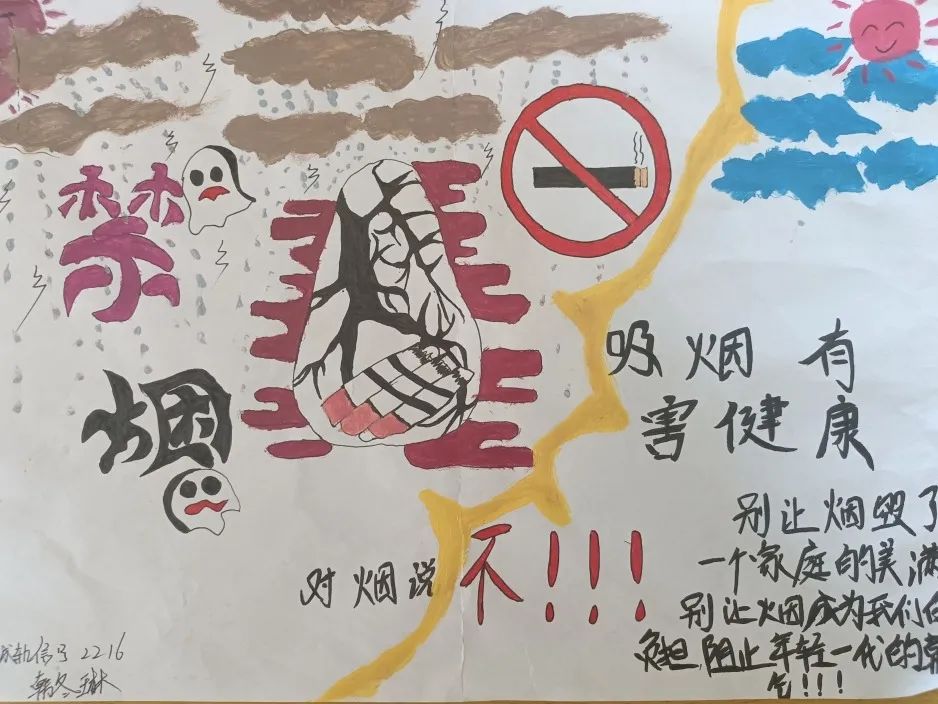 禁
烟
吸烟有
害健康
对烟说不!!!
别让烟毁了
一个家庭的美满
别让烟成为我们的
负担阻止年轻一代的朝
气!!!
信号 2216
韩冬琳